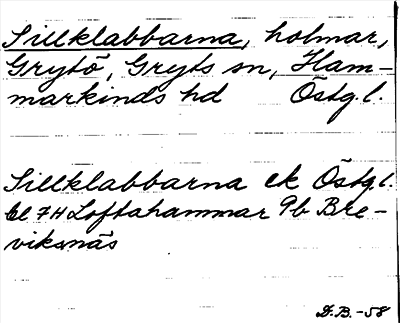 Sillklabbarna, holmar,
Grytö, Gryts sn, Ham-
markinds hd Östg.l.
Sillklabbarna ek Östg.l.
bl 7H Loftahammar 9b Bre-
viksnäs
D.B.-58